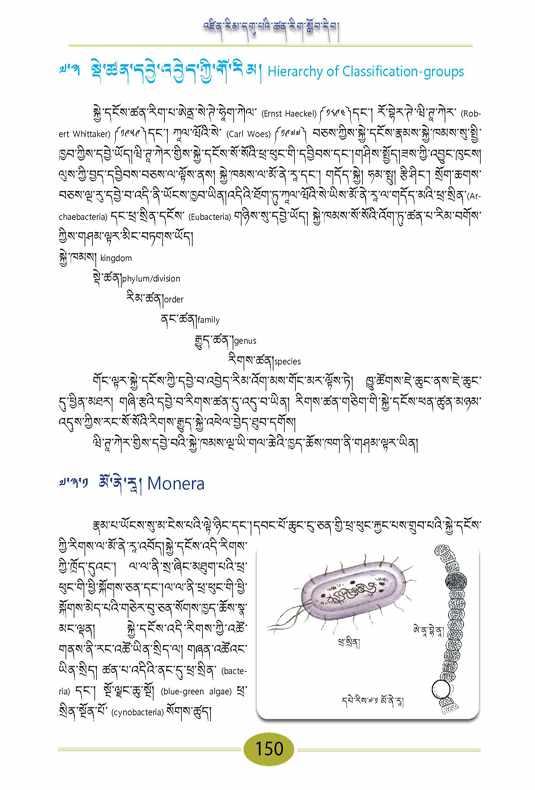 འཛིན་རིམ་དགུ་པའི་ཚན་རིག་སློབ་དེབ།
༧་༣ སྡེ་ཚན་དབྱེ་འབྱེད་ཀྱི་གོ་རིམ། Hierarchy of Classification-groups
སྐྱེ་དངོས་ཚན་རིག་པ་ཨེན་སེ་ཊེ་ཧེག་ཀེལ་ (Ernst Haeckel) (༡༨༩༤)དང་། རོ་བྷེར་ཊེ་ཝི་ཊ་ཀེར་ (Rob-
ert Whittaker) (༡༩༥༩)དང་། ཀཱལ་ཝོའི་སེ་ (Carl Woes) (༡༩༧༧) བཅས་ཀྱིས་སྐྱེ་དངོས་རྣམས་སྐྱེ་ཁམས་སུ་སྤྱི་
ཁྱབ་ཀྱིས་དབྱེ་ཡོད།ཝི་ཊ་ཀེར་གྱིས་སྐྱེ་དངོས་སོ་སོའི་ཕྲ་ཕུང་གི་དབྱིབས་དང་།གཤིས་སྤྱོད།ཟས་ཀྱི་འབྱུང་ཁུངས།
ལུས་ཀྱི་བྱད་དབྱིབས་བཅས་ལ་ལྟོས་ནས། སྐྱེ་ཁམས་ལ་མོ་ནེ་ར་དང་། གདོད་སྐྱེ། ཧམ་སྤྲུ། རྩི་ཤིང་། སྲོག་ཆགས་
བཅས་ལྔ་རུ་དབྱེ་བ་འདི་ནི་ཡོངས་ཁྱབ་ཡིན།འདིའི་ཐོག་ཏུ་ཀཱལ་ཝོའི་སེ་ཡིས་མོ་ནེ་ར་ལ་གདོད་མའི་ཕྲ་སྲིན་(Ar-
chaebacteria) དང་ཕྲ་སྲིན་དངོས་ (Eubacteria) གཉིས་སུ་དབྱེ་ཡོད། སྐྱེ་ཁམས་སོ་སོའི་འོག་ཏུ་ཚན་པ་རིམ་བགོས་
ཀྱིས་གཤམ་ལྟར་མིང་བཏགས་ཡོད།
སྐྱེ་ཁམས། kingdom
སྡེ་ཚན།phylum/division
རིམ་ཚན།order
ནང་ཚན།family
རྒྱུད་ཚན།genus
རིགས་ཚན།species
གོང་ལྟར་སྐྱེ་དངོས་ཀྱི་དབྱེ་བ་འབྱེད་རིམ་འོག་མས་གོང་མར་ལྟོས་ཏེ། ཁྱུ་ཚོགས་ཇེ་ཆུང་ནས་ཇེ་ཆུང་
དུ་ཕྱིན་མཐར། གཞི་རྩའི་དབྱེ་བ་རིགས་ཚན་དུ་འདུ་བ་ཡིན། རིགས་ཚན་གཅིག་གི་སྐྱེ་དངོས་ཕན་ཚུན་མཉམ་
འདུས་ཀྱིས་རང་སོ་སོའི་རིགས་རྒྱུད་སྐྱེ་འཕེལ་བྱེད་ཐུབ་དགོས།
ཝི་ཊ་ཀེར་གྱིས་དབྱེ་བའི་སྐྱེ་ཁམས་ལྔ་ཡི་གལ་ཆེའི་ཁྱད་ཆོས་ཁག་ནི་གཤམ་ལྟར་ཡིན།
༧་༣་༡ མོ་ནེ་ར། Monera
རྣམ་པ་ཡོངས་སུ་མ་ངེས་པའི་ལྟེ་ཉིང་དང་།དབང་པོ་ཆུང་ངུ་ཅན་གྱི་ཕྲ་ཕུང་རྐྱང་པས་གྲུབ་པའི་སྐྱེ་དངོས་
ཀྱི་རིགས་ལ་མོ་ནེ་ར་འབོད།སྐྱེ་དངོས་འདི་རིགས་
ཀྱི་ཁྲོད་དུའང་། ལ་ལ་ནི་སྲ་ཞིང་མཐུག་པའི་ཕྲ་
ཕུང་གི་ཕྱི་སྐོགས་ཅན་དང་།ལ་ལ་ནི་ཕྲ་ཕུང་གི་ཕྱི་
སྐོགས་མེད་པའི་གཅེར་བུ་ཅན་སོགས་ཁྱད་ཆོས་སྣ་
མང་ལྡན། སྐྱེ་དངོས་འདི་རིགས་ཀྱི་འཚོ་
གནས་ནི་རང་འཚོ་ཡིན་སྲིད་ལ། གཞན་འཚོའང་
ཡིན་སྲིད། ཚན་པ་འདིའི་ནང་དུ་ཕྲ་སྲིན་ (bacte-
ria) དང་། སྔོ་ལྗང་ཆུ་སྔོ། (blue-green algae) ཕྲ་
སྲིན་སྔོན་པོ་ (cynobacteria) སོགས་ཚུད།
ཕྲ་སྲིན།
ཨེ་ན་བྷེ་ན།
དཔེ་རིས་༧༡ མོ་ནེ་ར།
150